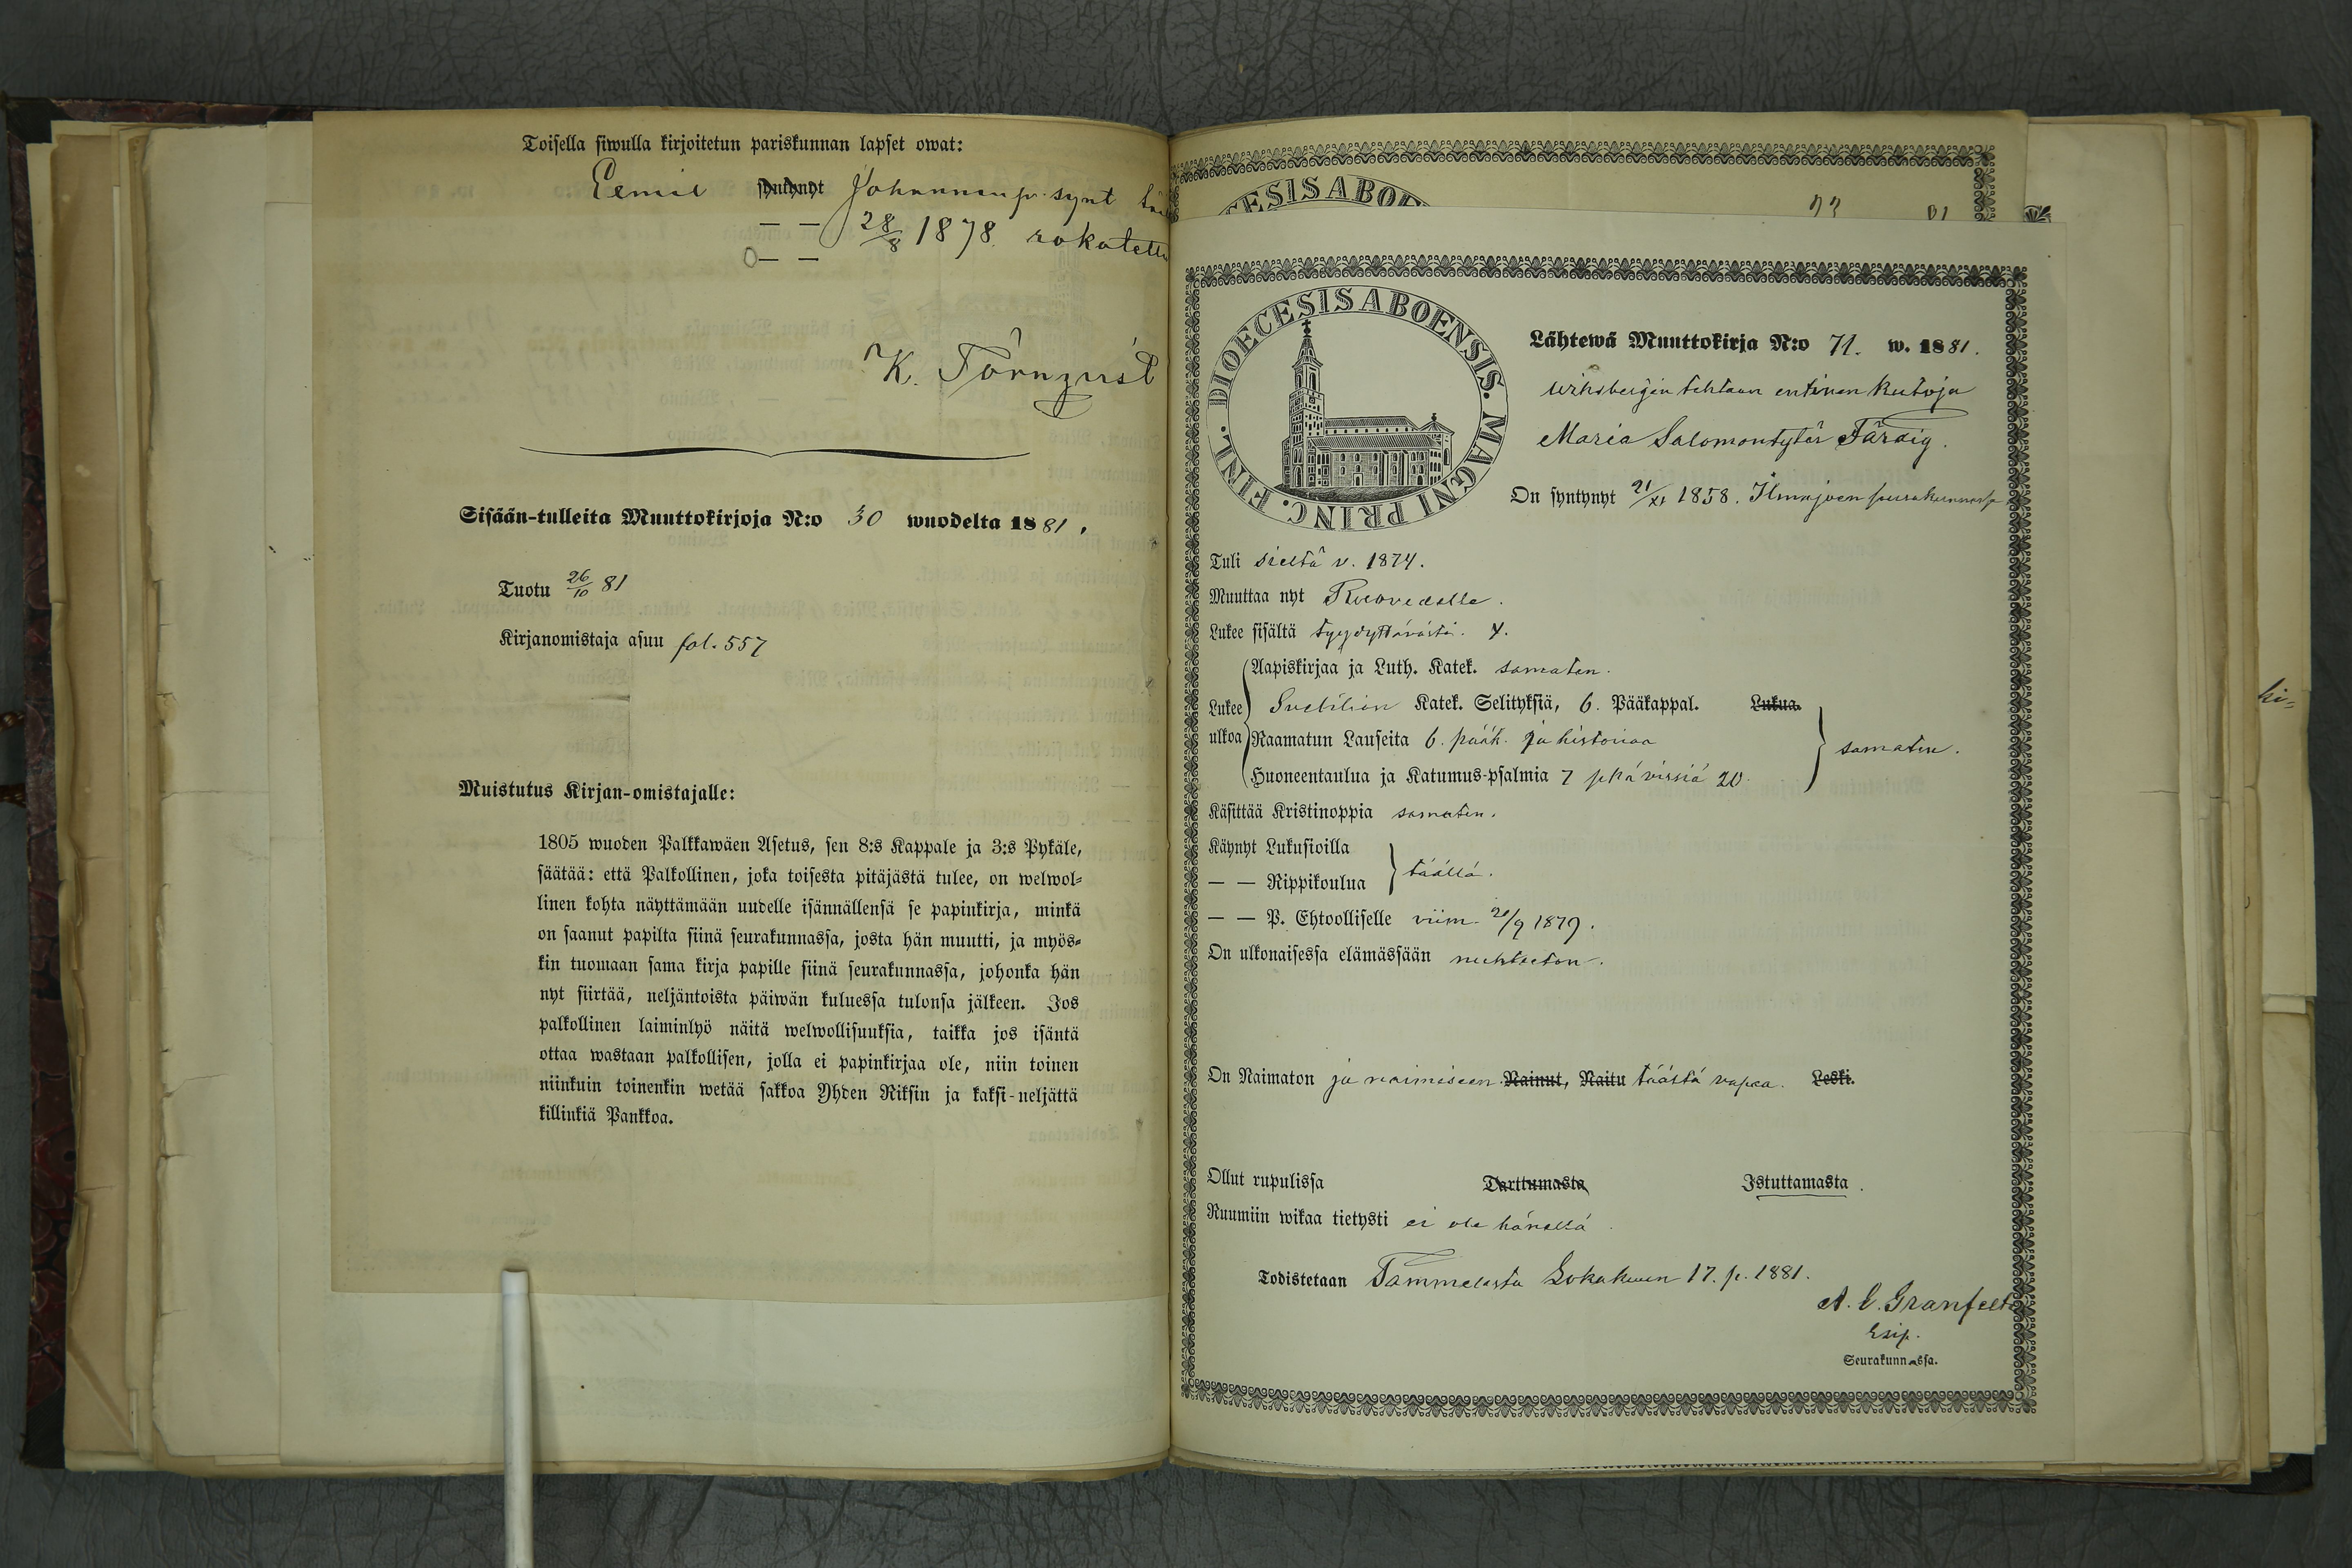 Toisella siwulla kirjoitetun pariskunnan lapset owat:
Eemil syntynyt Johannanp. synt
— — 28/8 1878 rokotettu
— —
K. Törnqvist
Sisään-tulleita Muuttokirjoja N:o 30 wuodelta 1881.
Tuotu 26/10 81
Kirjanomistaja asuu fol. 557
Muistutus Kirjan-omistajalle:
1805 wuoden Palkkawäen Asetus, sen 8:s Kappale ja 3:s Pykäle,
säätää: että Palkollinen, joka toisesta pitäjästä tulee, on welwol-
linen kohta näyttämään uudelle isännällensä se papinkirja, minkä
on saanut papilta siinä seurakunnassa, josta hän muutti, ja myös-
kin tuomaan sama kirja papille siinä seurakunnassa, johonka hän
nyt siirtää, neljäntoista päiwän kuluessa tulonsa jälkeen. Jos
palkollinen laiminlyö näitä welwollisuuksia, taikka jos isäntä
ottaa wastaan palkollisen, jolla ei papinkirjaa ole, niin toinen
niinkuin toinenkin wetää sakkoa Yhden Riksin ja kaksi-neljättä
killinkiä Pankkoa.
DIOECESIS ABOENSIS. MAGNI PRINC. FINL.
Lähtewä Muuttokirja N:o 71. w. 1881.
Wiksbergin tehtaan entinen kutoja
Maria Salomontytär Färdig.
On syntynyt 21/XI 1858. Ilmajoen seurakunnassa
Tuli sieltä v. 1874.
Muuttaa nyt Ruovedelle.
Lukee sisältä tyydyttävästi. 4.
Lukee ulkoa
Aapiskirjaa ja Luth. Katek. samaten.
Svebilion Katek. Selityksiä, 6. Pääkappal. Lukua.
Raamatun Lauseita 6. pääk. ja historiaa
Huoneentaulua ja Katumus-psalmia 7 sekä virsiä 20.
samaten.
Käsittää Kristinoppia samaten.
Käynyt Lukusioilla
— — Rippikoulua
täällä.
— — P. Ehtoolliselle viim. 21/9 1879.
On ulkonaisessa elämässään nuhteeton.
On Naimaton ja naimiseen Nainut, Naitu täästä vapaa. Leski.
Ollut rupulissa Tarttumasta Istuttamasta.
Ruumiin wikaa tietysti ei ole hänellä.
Todistetaan Tammelasta Lokakuun 17. p. 1881.
A. L. Granfelt
Esip.
Seurakunnassa.
DIOECESIS ABOE
ki-